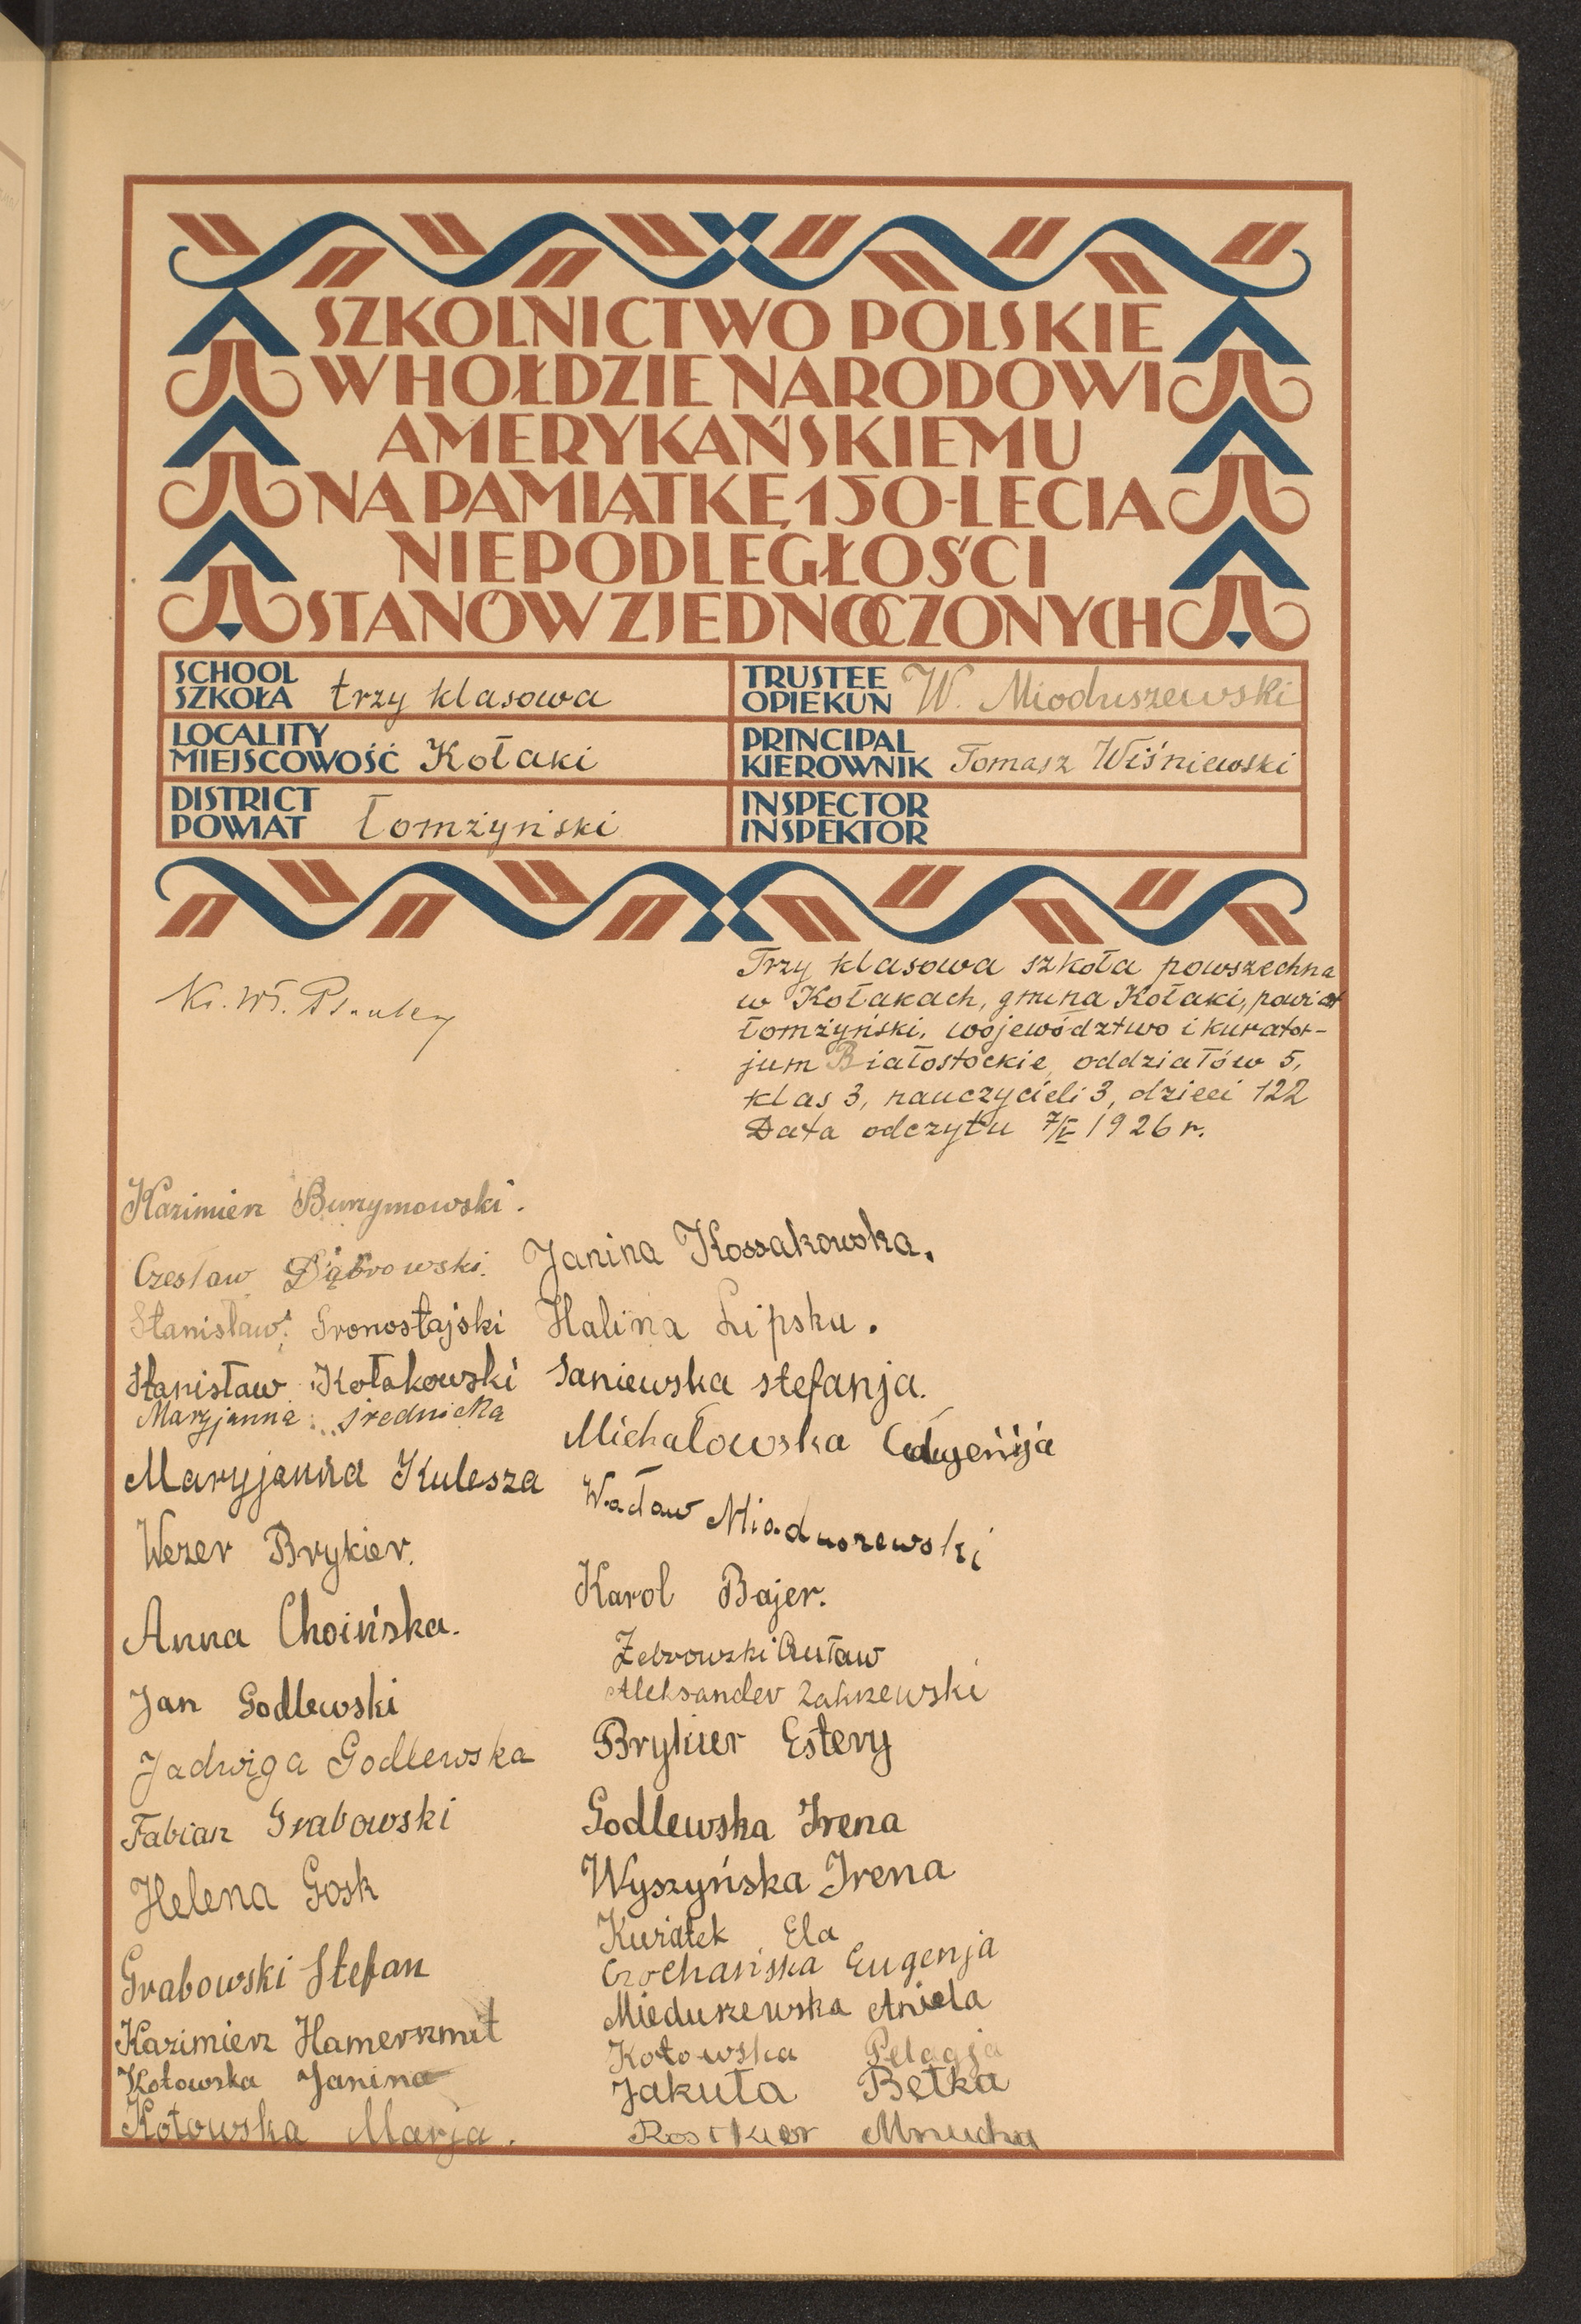 SZKOLNICTWO POLSKIE
W HOŁDZIE NARODOWI
AMERYKAŃSKIEMU
NA PAMIĄTKĘ 150-LECIA
NIEPODLEGŁOŚCI
STANÓW ZJEDNOCZONYCH
SCHOOL
SZKOŁA trzy klasowa
TRUSTEE
OPIEKUN W. Mioduszewski
LOCALITY
MIEJSCOWOŚĆ Kołaki
PRINCIPAL
KIEROWNIK Tomasz Wiśniewski
DISTRICT
POWIAT Łomżyński
INSPECTOR
INSPEKTOR
Trzy klasowa szkoła powszechna
w Kołakach, gmina Kołaki, powiat
Łomżyński, województwo i kurator-
jum Białostockie, oddziałów 5,
klas 3, nauczycieli 3, dzieci 122
Data odczytu 7/V 1926 r.
Kazimierz
Czesław Dąbrowski.
Stanisław Gronostajski
Stanisław Kołakowski
Maryjanna Średnicka
Maryjanna Kulesza
Wezer Brykier.
Anna Choińska.
Jan Godlewski
Jadwiga Godlewska
Fabian Grabowski
Helena Gosk
Grabowski Stefan
Kazimierz Hamerszmit
Kotowska Janina
Kotowska Marja.
Janina Kossakowska.
Halina Lipska.
Saniewska stefanja.
Michałowska
Wacław Mioduszewski
Karol Bajer.
Zebrowski
Aleksander Zakrzewski
Brykier Estery
Godlewska Irena
Wyszyńska Irena
Kuriatek Ela
Czochańska Eugenja
Mieduszewska Aniela
Kotowska Pelagja
Jakuta Betka